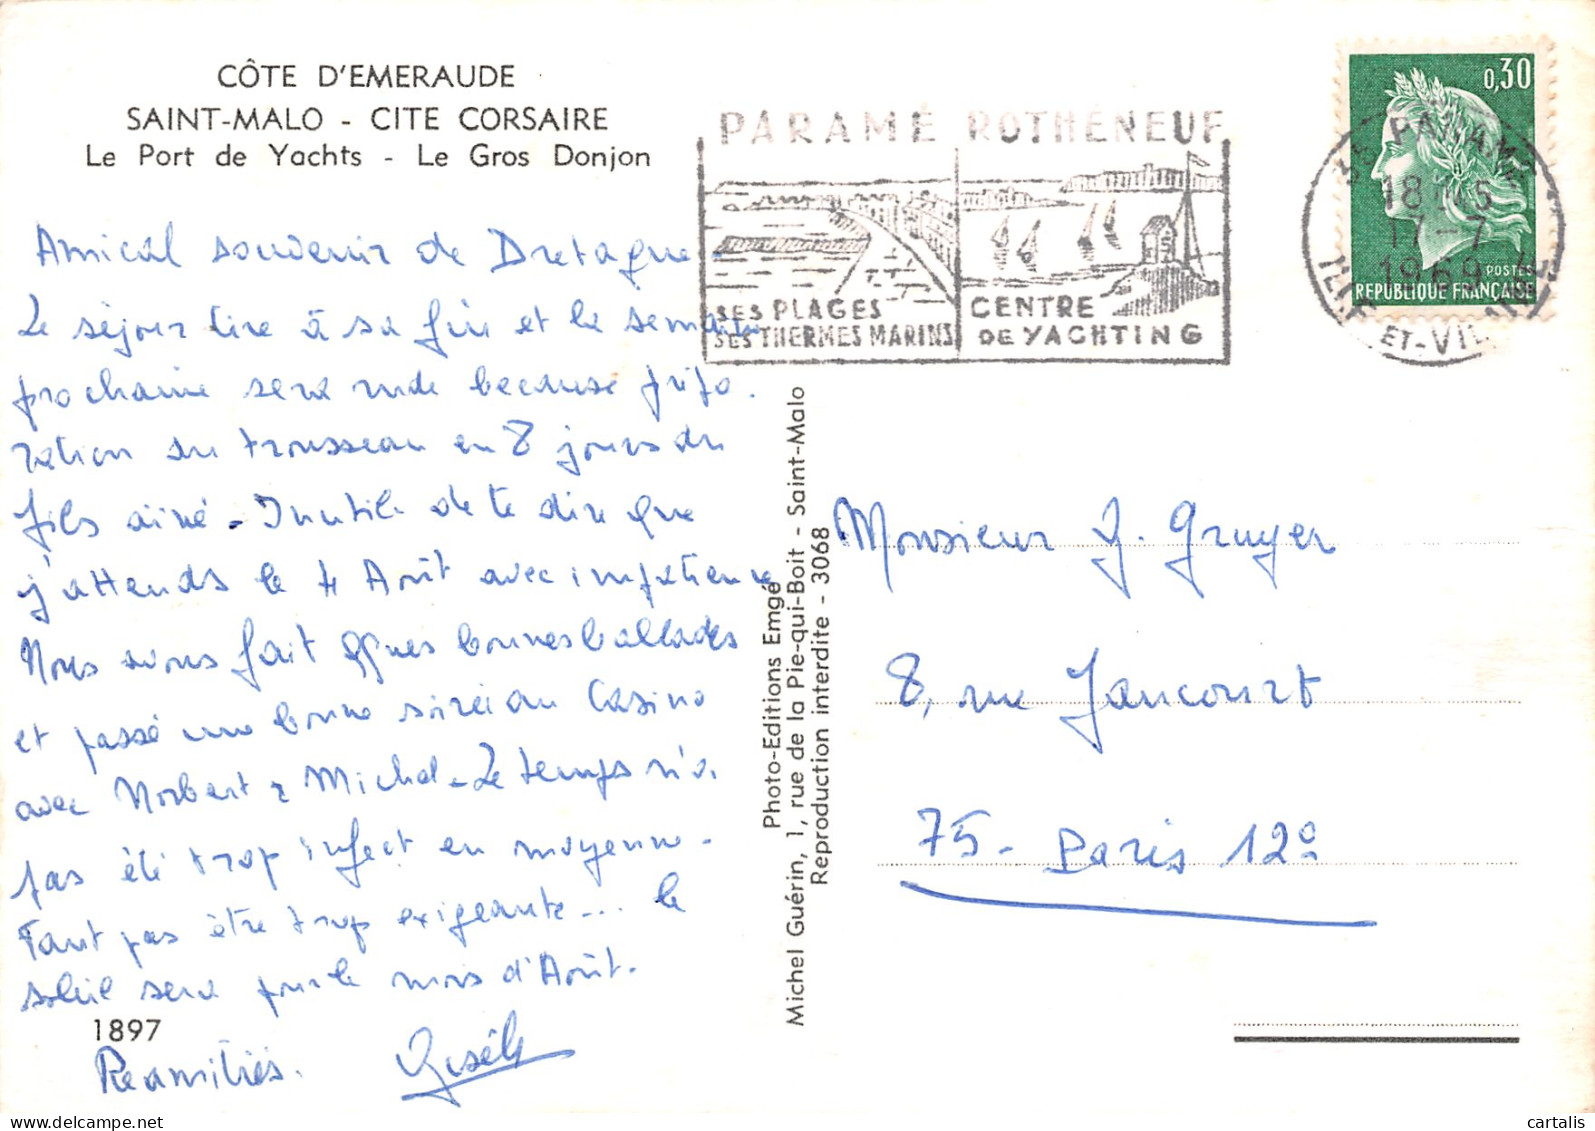 CÔTE D'EMERAUDE
SAINT-MALO - CITE CORSAIRE
Le Port de Yachts - Le Gros Donjon
Amical souvenir de Bretagne -
Le séjour tire à sa fin et la semaine
prochaine sera rude because prépa-
ration du trousseau en 8 jours du
fils aîné - Inutile de te dire que
j'attends le 4 Août avec impatience
Nous avons fait qques bonnes ballades
et passé une bonne soirée au Casino
avec Norbert & Michel - Le temps n'a
pas été trop infect en moyenne -
Faut pas être trop exigeante ... le
soleil sera pour le mois d'Août.
1897
Réamitiés.
Gisèle
PARAMÉ ROTHÉNEUF
SES PLAGES
SES THERMES MARINS
CENTRE
DE YACHTING
35 PARAMÉ
18H15
17-7
1969
ILLE-ET-VILAINE
0,30
POSTES
REPUBLIQUE FRANÇAISE
Photo-Editions Emgé
Michel Guérin, 1, rue de la Pie-qui-Boit - Saint-Malo
Reproduction interdite - 3068
Monsieur J. Gruyer
8, rue Jaucourt
75 - Paris 12e
cartalis
www.delcampe.net